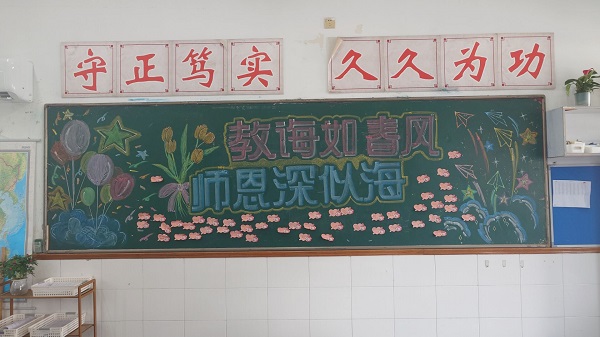 守正笃实 久久为功
教诲如春风
师恩深似海